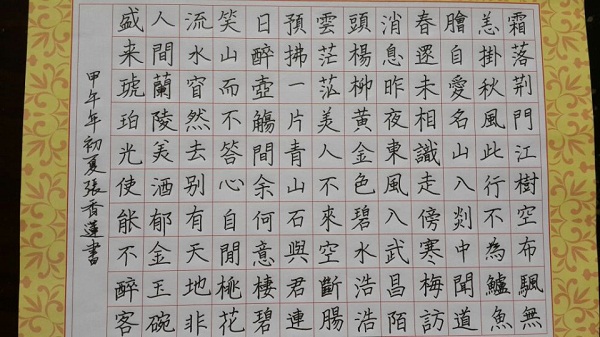 霜落荆門江樹空布颿無
恙掛秋風此行不為鱸魚
膾自愛名山入剡中聞道
春還未相識走傍寒梅訪
消息昨夜東風入武昌陌
頭楊柳黃金色碧水浩浩
雲茫茫美人不來空斷腸
預拂一片青山石與君連
日醉壺觴間余何意棲碧
笑山而不答心自閒桃花
流水窅然去別有天地非
人間蘭陵美酒郁金玉碗
盛来琥珀光使能不醉客
甲午年初夏張香蓮書